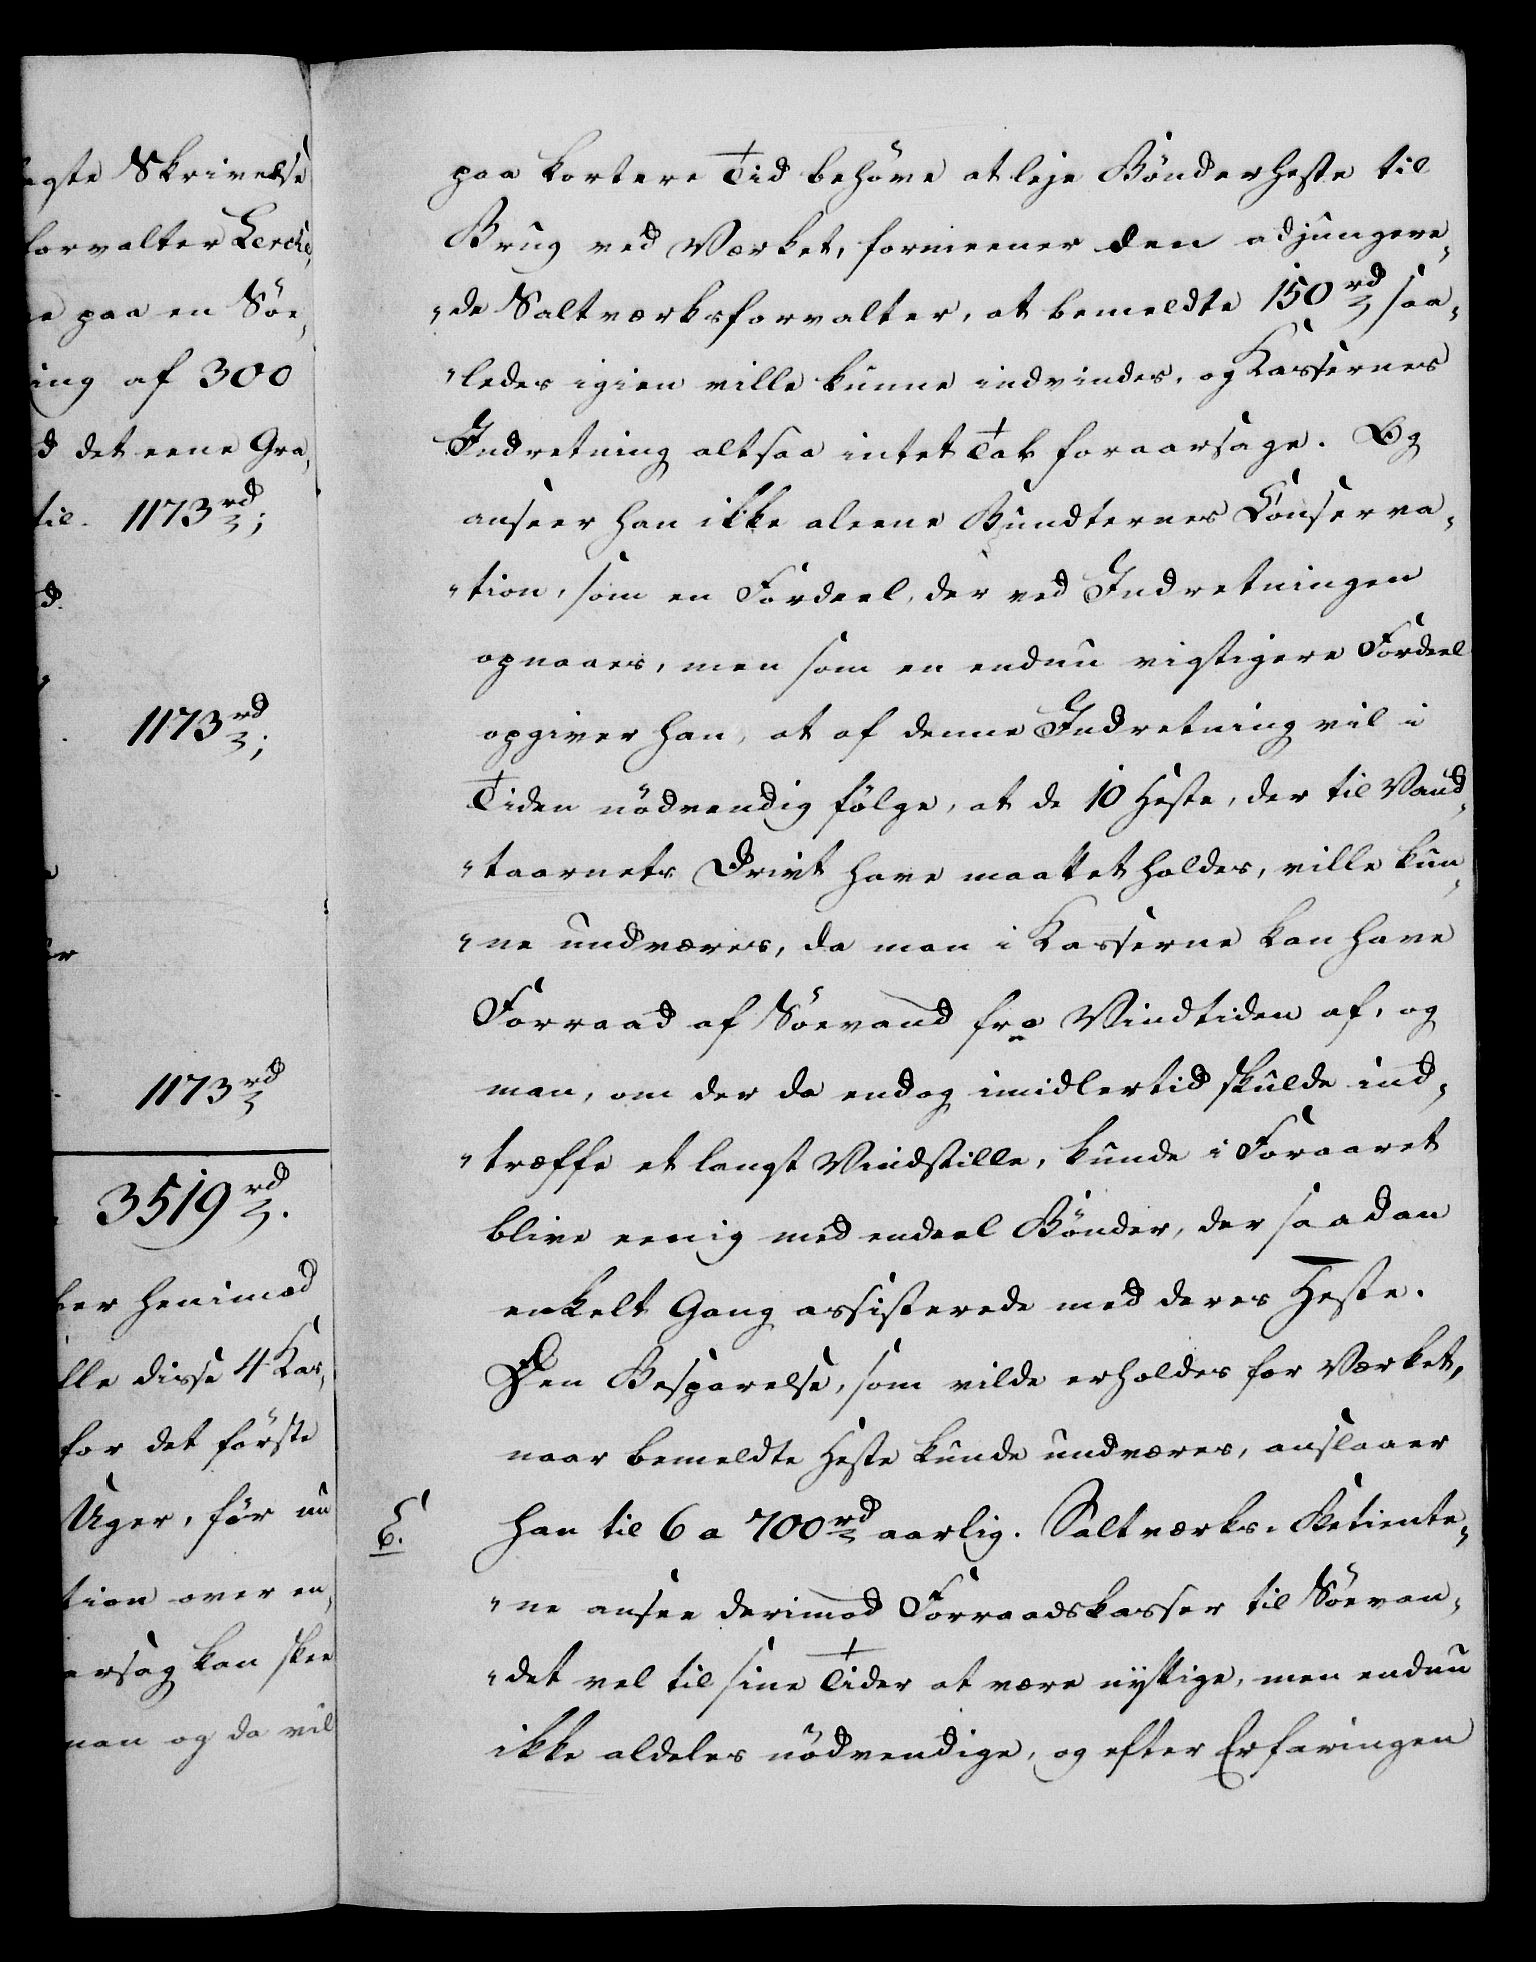 agte Skrivelse
forvalter Lerche,
e paa en Söe,
ing af 300
d det eene Gra,
til. 1173 rd;
d.
1173 rd;
er
1173 rd
3519 rd.
ker henimod
lle disse 4 Kas,
for det förste
Uger, för nu
tion over en,
arsag kan skee
man og da vil
paa kortere Tid behöve at leje Bönderheste til
Brug ved Værket, formeener den adjungere,
"de Saltværksforvalter, at bemeldte 150 rd saa,
"ledes igien ville kunne indvindes, og Kassernes
Indretning altsaa intet Tab foraarsage. Og
anseer han ikke aleene Bundternes Conserva,
"tion, som en Fordeel, der ved Indretningen
opnaaes, men som en endnu vigtigere Fordeel
opgiver han, at af denne Indretning vil i
Tiden nödvendig fölge, at de 10 Heste, der til Vand,
"taarnets Drivt have maattet holdes, ville kun,
"ne undværes, da man i Kasserne kan have
Forraad af Söevand fra Vindtiden af, og
man, om der da endog imidlertid skulde ind,
"træffe et langt Vindstille, kunde i Foraaret
blive eenig med endeel Bönder, der saadan
enkelt Gang assisterede med deres Heste.
Den Besparelse, som vilde erholdes for Værket,
naar bemeldte Heste kunde undværes, anslaaer
6. han til 6 a 700 rd aarlig. Saltværks-Betiente,
"ne ansee derimod Forraadskasser til Söevan,
"det vel til sine Tider at være nyttige, men endnu
ikke aldeles nödvendige, og efter Erfaringen